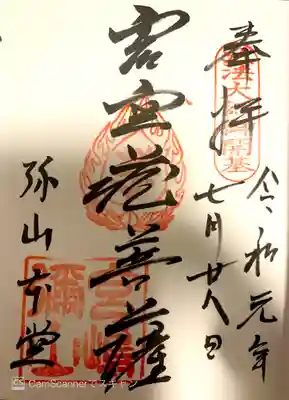 奉拝
令和元年
七月廿八日
虚空蔵菩薩
弥山本堂
宮嶋
彌山
CamScannerでスキャン